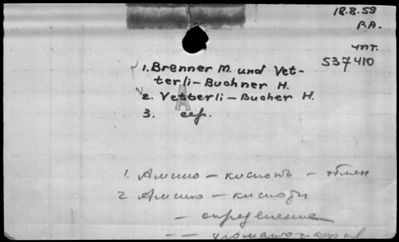 18.8.59
P.A.
чит.
537410
1. Brenner M. und Vet-
terli-Buchner H.
2. Vetterli-Bucher H.
3. сер.
1. Амино-кислоты - обмен
2 Амино-кислоты
- определение
-- хроматография